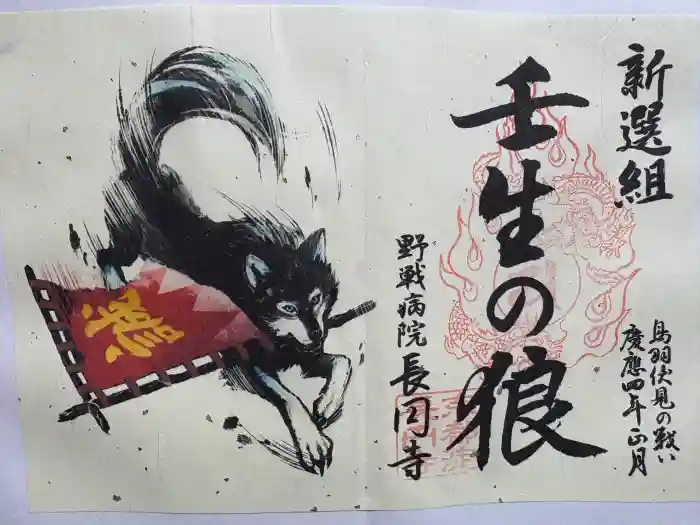 新選組
壬生の狼
鳥羽伏見の戦い
慶應四年正月
野戦病院 長円寺